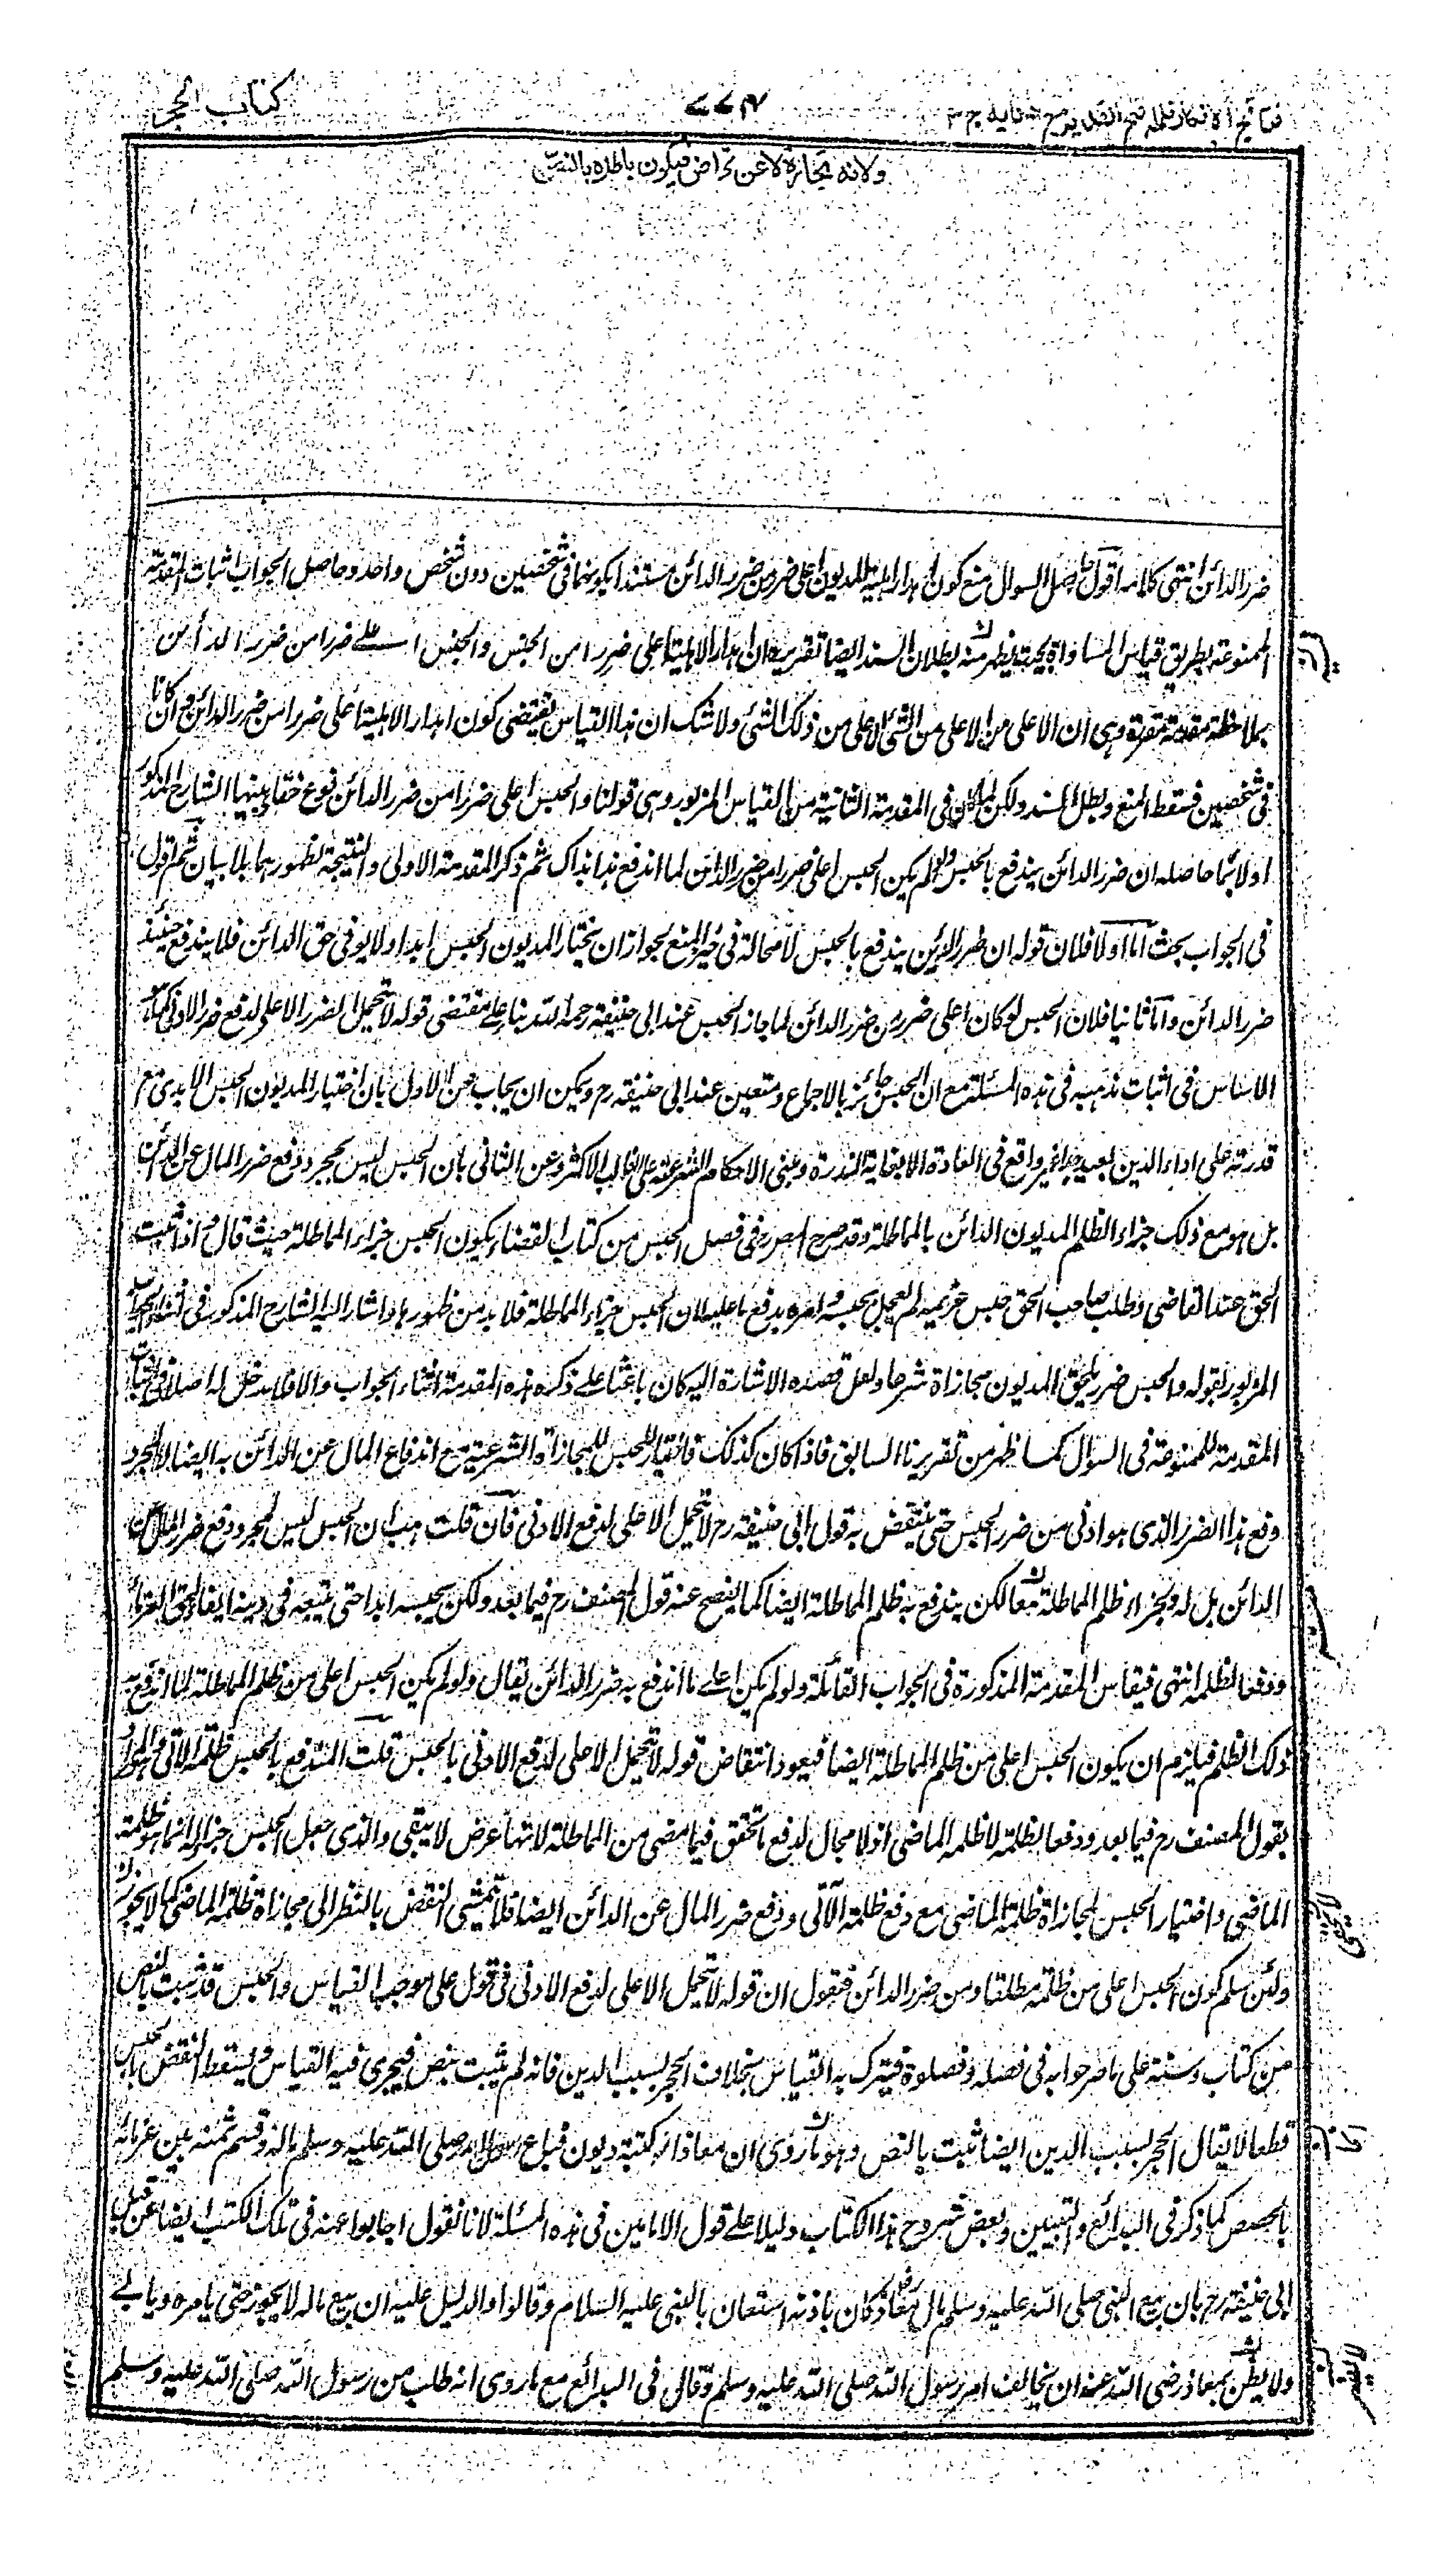 نتائج الافكار تكملة فتح القدير مع هدايه ج ٣
٧٧٢
كتاب الحجر
ولانه تجارة لا عن تراض فيكون باطلا بالنص
ضرر الدائن انتهى كلامه اقول حاصل السوال منع كون اهدار اهلية المديون اعلى ضررا من ضرر الدائن مستندا بكونهما فى شخصين دون شخص واحد وحاصل الجواب اثبات المقدمة
الممنوعة بطريق قياس المساواة بحيث يظهر منه بطلان السند ايضا تقريره ان اهدار الاهلية اعلى ضررا من الحبس والحبس اعلے ضررا من ضرر الدائن
بملاحظة مقدمة مقررة وهى ان الاعلى من الاعلى من الشئ الاعلى من ذلك الشئ ولا شك ان هذا القياس يقتضى كون اهدار الاهلية اعلى ضررا من ضرر الدائن وان كانا
فى شخصين فسقط المنع وبطل السند ولكن لما كان فى المقدمة الثانية من القياس المزبور وهى قولنا والحبس اعلى ضررا من ضرر الدائن نوع خفاء بينها الشارح المذكور
اولا بما حاصله ان ضرر الدائن يندفع بالحبس ولو لم يكن الحبس اعلى ضررا من ضرر الدائن لما اندفع هذا بذاك ثم ذكر المقدمة الاولى والنتيجة لظهورهما بلا بيان ثم اقول
فى الجواب بحث اما اولا فلان قوله ان ضرر الدائن يندفع بالحبس لا محالة فى حيز المنع لجواز ان يختار المديون الحبس ابدا ولا يوفى حق الدائن فلا يندفع حينئذ
ضرر الدائن واما ثانيا فلان الحبس لو كان اعلى ضررا من ضرر الدائن لما جاز الحبس عند ابى حنيفة رحمه الله بناء على مقتضى قوله لا تحمل لضرر الاعلى لدفع ضرر الادنى كما هو
الاساس فى اثبات مذهبه فى هذه المسئلة مع ان الحبس جائز بالاجماع ومتعين عند ابى حنيفة رح ويمكن ان يجاب عن الاول بان اختيار المديون الحبس الابدى مع
قدرته على اداء الدين بعيد جدا غير واقع فى العادة الا بغاية الندرة ومبنى الاحكام الشرعية على الغالب الاكثر وعن الثانى بان الحبس ليس لمجرد دفع ضرر المال عن الدائن
بل هو مع ذلك جزاء الظلم المديون الدائن بالمماطلة وقد صرح المصنف رح فى فصل الحبس من كتاب القضاء بكون الحبس جزاء المماطلة حيث قال واذا ثبت
الحق عند القاضى وطلب صاحب الحق حبس غريمه لم يعجل بحبسه وامره بدفع ما عليه لان الحبس جزاء المماطلة فلا بد من ظهورها واشار اليه الشارح المذكور فى اثناء الجواب
المزبور بقوله والحبس ضرر يلحق المديون مجازاة شرعا ولعل قصده الاشارة اليه كان باعثا على ذكره هذه المقدمة اثناء الجواب والا فلا مدخل له اصلا فى اثبات
المقدمة الممنوعة فى السؤال كما ظهر من تقريرنا السابق فاذا كان كذلك فاختيار الحبس للمجازاة الشرعية مع اندفاع المال عن الدائن به ايضا لا لمجرد
دفع هذا الضرر الذى هو ادنى من ضرر الحبس حتى ينتقض به قول ابى حنيفة رح لا تحمل الاعلى لدفع الادنى فان قلت هب ان الحبس ليس لمجرد دفع ضرر المال عن
الدائن بل له ولجزاء ظلم المماطلة معا لكن يندفع به ظلم المماطلة ايضا كما يفصح عنه قول المصنف رح فيما بعد ولكن يحبسه ابدا حتى يبيعه فى دينه ايفاء لحق الغرماء
ودفعا لظلمه انتهى فبقياس المقدمة المذكورة فى الجواب القائلة ولو لم يكن اعلى ما اندفع به ضرر الدائن يقال ولو لم يكن الحبس اعلى من ظلم المماطلة لما اندفع به
ذلك الظلم فيلزم ان يكون الحبس اعلى من ظلم المماطلة ايضا فيعود انتقاض قوله لا تحمل الاعلى لدفع الادنى بالحبس قلت المندفع بالحبس ظلمه الآتى وهو المراد
بقول المصنف رح فيما بعد ودفعا لظلمه لا ظلمه الماضى اذ لا مجال لدفع ما تحقق فيما مضى من المماطلة لانها عرض لا يبقى والذى جعل الحبس جزاء له انما هو ظلمه
الماضى واختيار الحبس لمجازاة ظلمه الماضى مع دفع ظلمه الآتى ودفع ضرر المال عن الدائن ايضا فلا يتمشى النقض بالنظر الى مجازاة ظلمه الماضى كما لا يخفى
ولئن سلم كون الحبس اعلى من ظلمه مطلقا ومن ضرر الدائن فنقول ان قوله لا تحمل الاعلى لدفع الادنى فى قول على موجب القياس والحبس قد ثبت بالنص
من كتاب وسنة على ما صرحوا به فى فصله وفصلوه فيترك به القياس بخلاف الحجر بسبب الدين فانه لم يثبت بنص فيجرى فيه القياس ويسقط النقض بالحبس
قطعا لا يقال الحجر بسبب الدين ايضا ثبت بالنص وهو ما روى ان معاذا ركبته ديون فباع رسول الله صلى الله عليه وسلم ماله وقسم ثمنه بين غرمائه
بالحصص كما ذكر فى البدائع والتبيين وبعض شروح هذا الكتاب دليلا على قول الامامين فى هذه المسئلة لانا نقول اجابوا عنه فى تلك الكتب ايضا عن قبل
ابى حنيفة رح بان بيع النبى صلى الله عليه وسلم مال معاذ كان باذنه استعان بالنبى عليه السلام وقالوا والدليل عليه ان بيع ماله لا يجوز حتى يامره ويابى
ولا يظن بمعاذ رضى الله عنه ان يخالف امر رسول الله صلى الله عليه وسلم وقال فى البدائع مع ما روى انه طلب من رسول الله صلى الله عليه وسلم